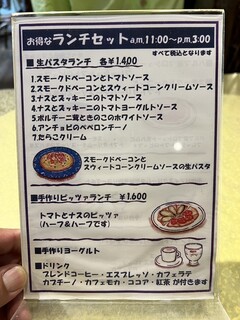 お得なランチセット a.m.11:00〜p.m.3:00
すべて税込となります
■生パスタランチ 各¥1,400
1.スモークドベーコンとトマトソース
2.スモークドベーコンとスウィートコーンクリームソース
3.ナスとズッキーニのトマトソース
4.ナスとズッキーニのトマトヨーグルトソース
5.ポルチーニ茸ときのこのホワイトソース
6.アンチョビのペペロンチーノ
7.たらこクリーム
スモークドベーコンと
スウィートコーンクリームソースの生パスタ
■手作りピッツァランチ ¥1,600
トマトとナスのピッツァ
(ハーフ&ハーフです)
■手作りヨーグルト
■ドリンク
ブレンドコーヒー・エスプレッソ・カフェラテ
カプチーノ・カフェモカ・ココア・紅茶 が付きます